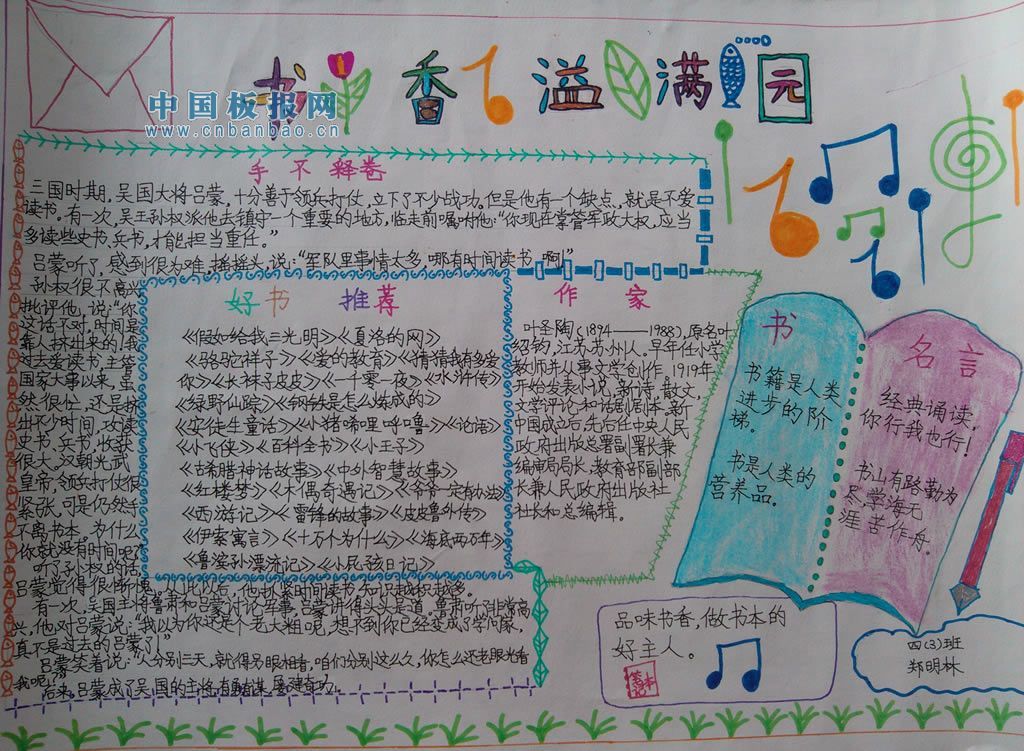 书香溢满园
中国板报网
www.cnbanbao.cn
手不释卷
三国时期,吴国大将吕蒙,十分善于领兵打仗,立下了不少战功。但是他有一个缺点,就是不爱
读书。有一次,吴王孙权派他去镇守一个重要的地方,临走前嘱咐他:“你现在掌管军政大权,应当
多读些史书、兵书,才能担当重任。”
吕蒙听了,感到很为难,摇摇头,说:“军队里事情太多,哪有时间读书啊!”
孙权很不高兴
批评他,说:“你
这话不对,时间是
靠人挤出来的!我
过去爱读书,主管
国家大事以来,虽
然很忙,还是挤
出不少时间,攻读
史书、兵书,收获
很大。汉朝光武
皇帝,领兵打仗很
紧张,可是仍然手
不离书本。为什么
你就没有时间呢?
听了孙权的话
吕蒙觉得很惭愧。从此以后,他抓紧时间读书,知识越积越多。
有一次,吴国主将鲁肃和吕蒙讨论军事,吕蒙讲得头头是道。鲁肃听了非常高
兴,他对吕蒙说:“我以为你还是个老大粗呢,想不到你已经变成了学问家,
真不是过去的吕蒙了!”
吕蒙笑着说:“人分别三天,就得另眼相看,咱们分别这么久,你怎么还老眼光看
我呢!”
后来,吕蒙成了吴国的主将,有勇有谋,屡建奇功。
好书 推荐
《假如给我三光明》《夏洛的网》
《骆驼祥子》《爱的教育》《猜猜我有多爱
你》《长袜子皮皮》《一千零一夜》《水浒传》
《绿野仙踪》《钢铁是怎么炼成的》
《安徒生童话》《小猪唏哩呼噜》《论语》
《小飞侠》《百科全书》《小王子》
《古希腊神话故事》《中外智慧故事》
《红楼梦》《木偶奇遇记》《爷爷一定有办法》
《西游记》《雷锋的故事》《皮皮鲁外传》
《伊索寓言》《十万个为什么》《海底两万年》
《鲁滨孙漂流记》《小民孩日记》
作家
叶圣陶(1894——1988),原名叶
绍钧,江苏苏州人。早年任小学
教师并从事文学创作,1919年
开始发表小说、新诗、散文、
文学评论和话剧剧本。新
中国成立后,先后任中央人民
政府出版总署副署长兼
编审局局长、教育部副部
长兼人民政府出版社
社长和总编辑。
书
书籍是人类
进步的阶
梯。
书是人类的
营养品。
名言
经典诵读,
你行我也行!
书山有路勤为
径,学海无
涯苦作舟。
品味书香,做书本的
好主人。
四(3)班
郑明林